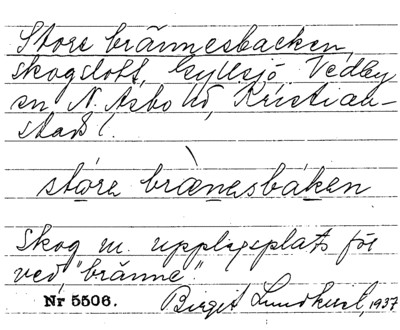 Store brännesbacken,
skogslott, Gyllsjö Vedby
sn N. Åsbo hd, Kristian-
stads l.
store brànesbáken
Skog m. upplagsplats för
ved, "bränne"
Nr 5506. Birgit 1937